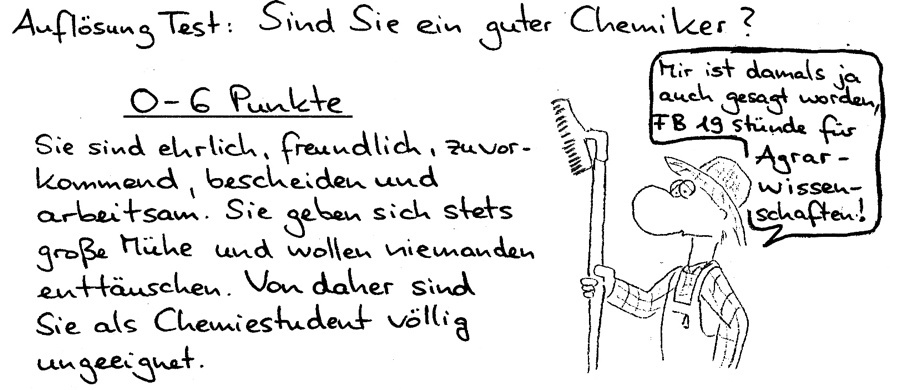 Auflösung Test: Sind Sie ein guter Chemiker?
0-6 Punkte
Sie sind ehrlich, freundlich, zuvor-
kommend, bescheiden und
arbeitsam. Sie geben sich stets
große Mühe und wollen niemanden
enttäuschen. Von daher sind
Sie als Chemiestudent völlig
ungeeignet.
Mir ist damals ja
auch gesagt worden,
FB 19 stünde für
Agrar-
wissen-
schaften!